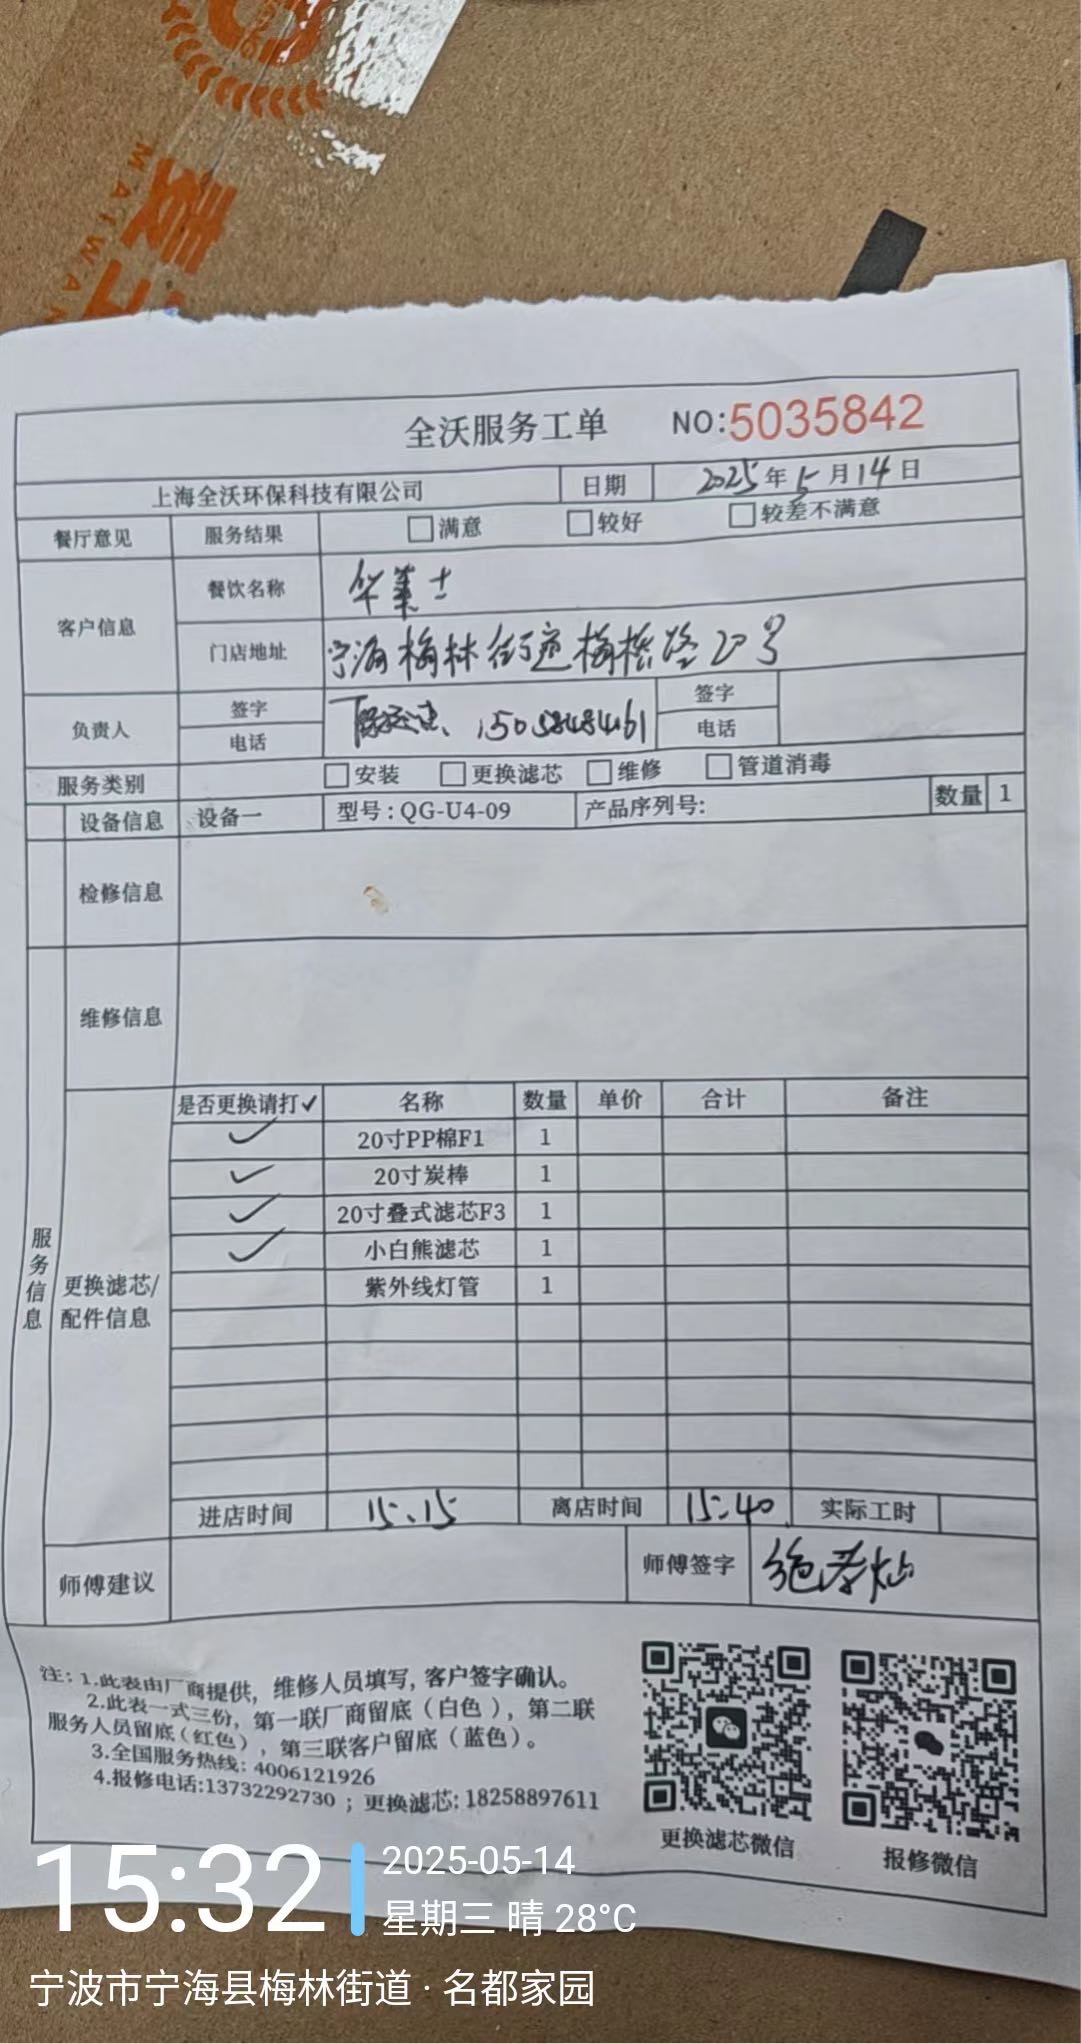 麦
MAIWAN
全沃服务工单 NO:5035842
上海全沃环保科技有限公司 日期 2025年5月14日
餐厅意见 服务结果 满意 较好 较差不满意
客户信息 餐饮名称 华莱士
门店地址 宁海梅林街道梅桥路20号
负责人 签字 电话 15058484161 签字 电话
服务类别 安装 更换滤芯 维修 管道消毒
设备信息 设备一 型号:QG-U4-09 产品序列号: 数量 1
检修信息
维修信息
服务信息
更换滤芯/配件信息
是否更换请打✓ 名称 数量 单价 合计 备注
✓ 20寸PP棉F1 1
✓ 20寸炭棒 1
✓ 20寸叠式滤芯F3 1
✓ 小白熊滤芯 1
紫外线灯管 1
进店时间 15:15 离店时间 15:40 实际工时
师傅建议 师傅签字
注:1.此表由厂商提供，维修人员填写，客户签字确认。
2.此表一式三份，第一联厂商留底（白色），第二联
服务人员留底（红色），第三联客户留底（蓝色）。
3.全国服务热线:4006121926
4.报修电话:13732292730；更换滤芯:18258897611
更换滤芯微信 报修微信
15:32 2025-05-14
星期三 晴 28°C
宁波市宁海县梅林街道·名都家园